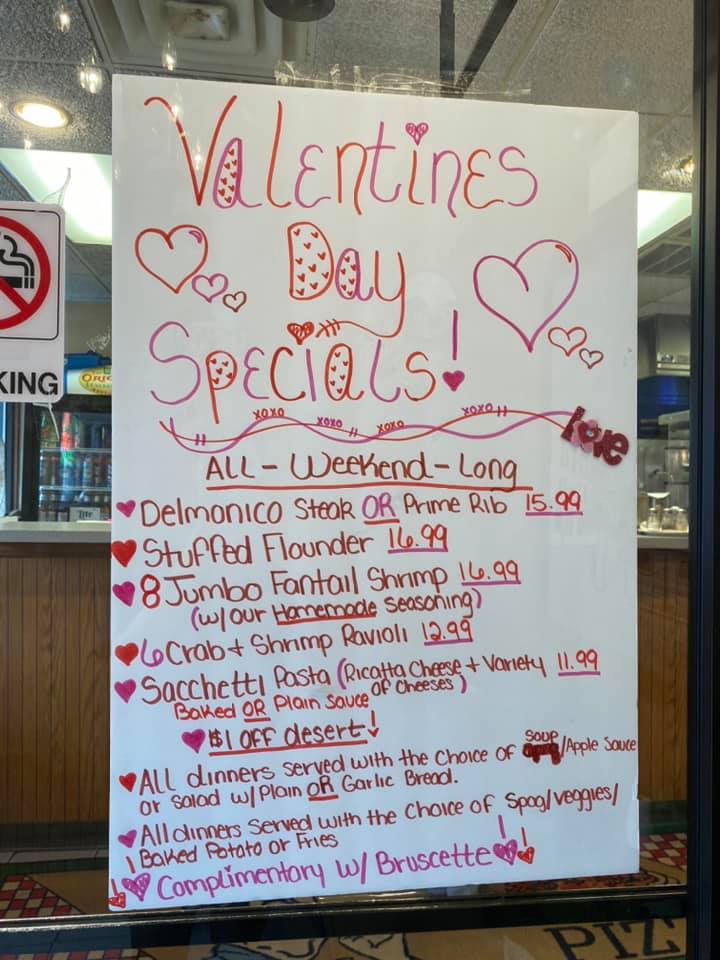 Valentines
Day
Specials!
xoxo xoxo xoxo xoxo
love
KING
All - Weekend - Long
Delmonico Steak OR Prime Rib 15.99
Stuffed Flounder 16.99
8 Jumbo Fantail Shrimp 16.99
(w/our Homemade seasoning)
6 Crab + Shrimp Ravioli 12.99
Sacchetti Pasta (Ricatta Cheese + Variety 11.99
of cheeses)
Baked OR Plain Sauce
$1 OFF desert!
All dinners served with the choice of soup/Apple Sauce
or salad w/Plain OR Garlic Bread.
All dinners served with the choice of Spag/veggies/
Baked Potato or Fries
Complimentary w/ Bruscette!
PIZ